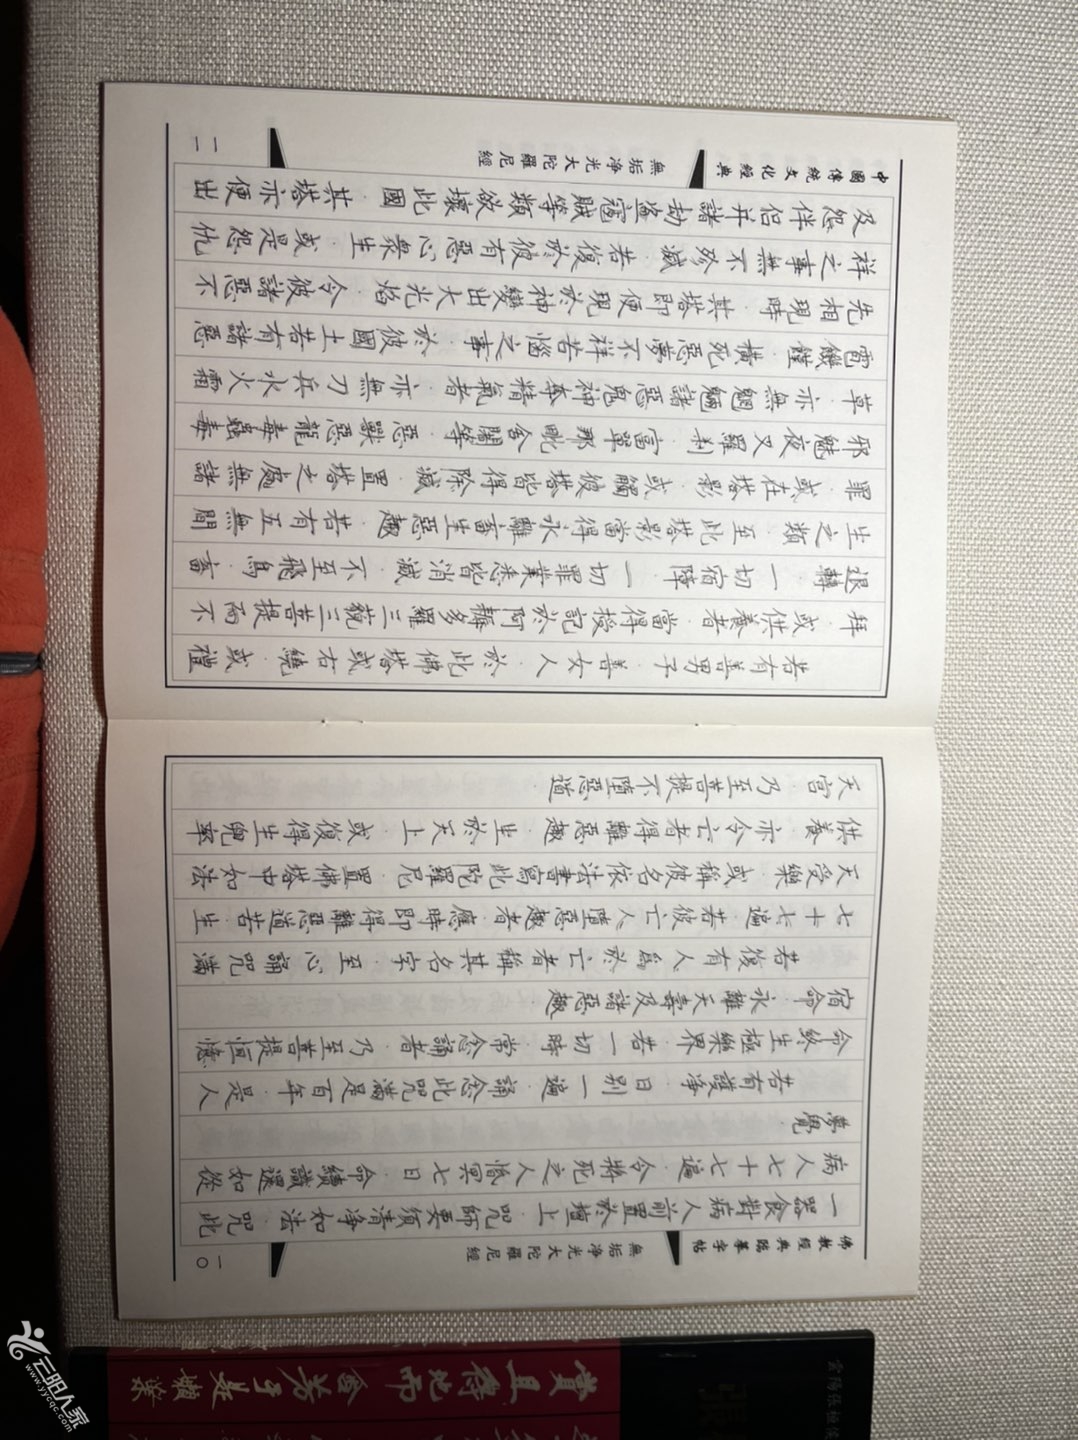 佛教經典臨摹字帖
無垢淨光大陀羅尼經
一〇
一器食對病人前置於壇上．咒師要須清淨如法．咒此
病人七十七遍．令將死之人惛冥七日．命續識還如從
夢覺．
若有護淨．日別一遍．誦念此咒滿足百年是人
命終生極樂界．若一切時．常念誦者．乃至菩提恒憶
宿命．永離夭壽及諸惡趣．
若復有人為於亡者稱其名字．至心誦咒滿
七十七遍．若彼亡人墮惡趣者．應時即得離惡道苦．生
天受樂．或稱彼名依法書寫此陀羅尼．置佛塔中如法
供養．亦令亡者得離惡趣．生於天上．或復得生兜率
天宮．乃至菩提不墮惡道．
若有善男子．善女人．於此佛塔或右繞．或禮
拜．或供養者．當得授記於阿耨多羅三藐三菩提而不
退轉．一切宿障．一切罪業悉皆消滅．不至飛鳥．畜
生之類．至此塔影當得永離畜生惡趣．若有五無間
罪．或在塔影．或觸彼塔皆得除滅．置塔之處無諸
邪魅夜叉羅剎．富單那毗舍闍等．惡獸惡龍毒蟲毒
草．亦無魍魎諸惡鬼神奪精氣者．亦無刀兵水火霜
雹饑饉．橫死惡夢不祥苦惱之事．於彼國土若有諸惡
先相現時．其塔即便現於神變出大光焰．令彼諸惡不
祥之事無不殄滅．若復於彼有惡心眾生．或是怨仇
及怨伴侶并諸劫盜寇賊等類欲壞此國．其塔亦便出
中國傳統文化經典
無垢淨光大陀羅尼經
一一
云阳人家
www.yycqc.com